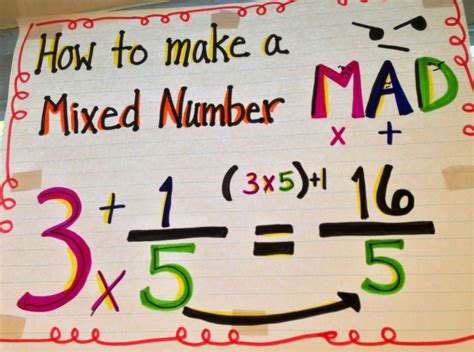 How to make a
Mixed Number
MAD
x +
3 + 1/5 = (3x5)+1 16/5
x